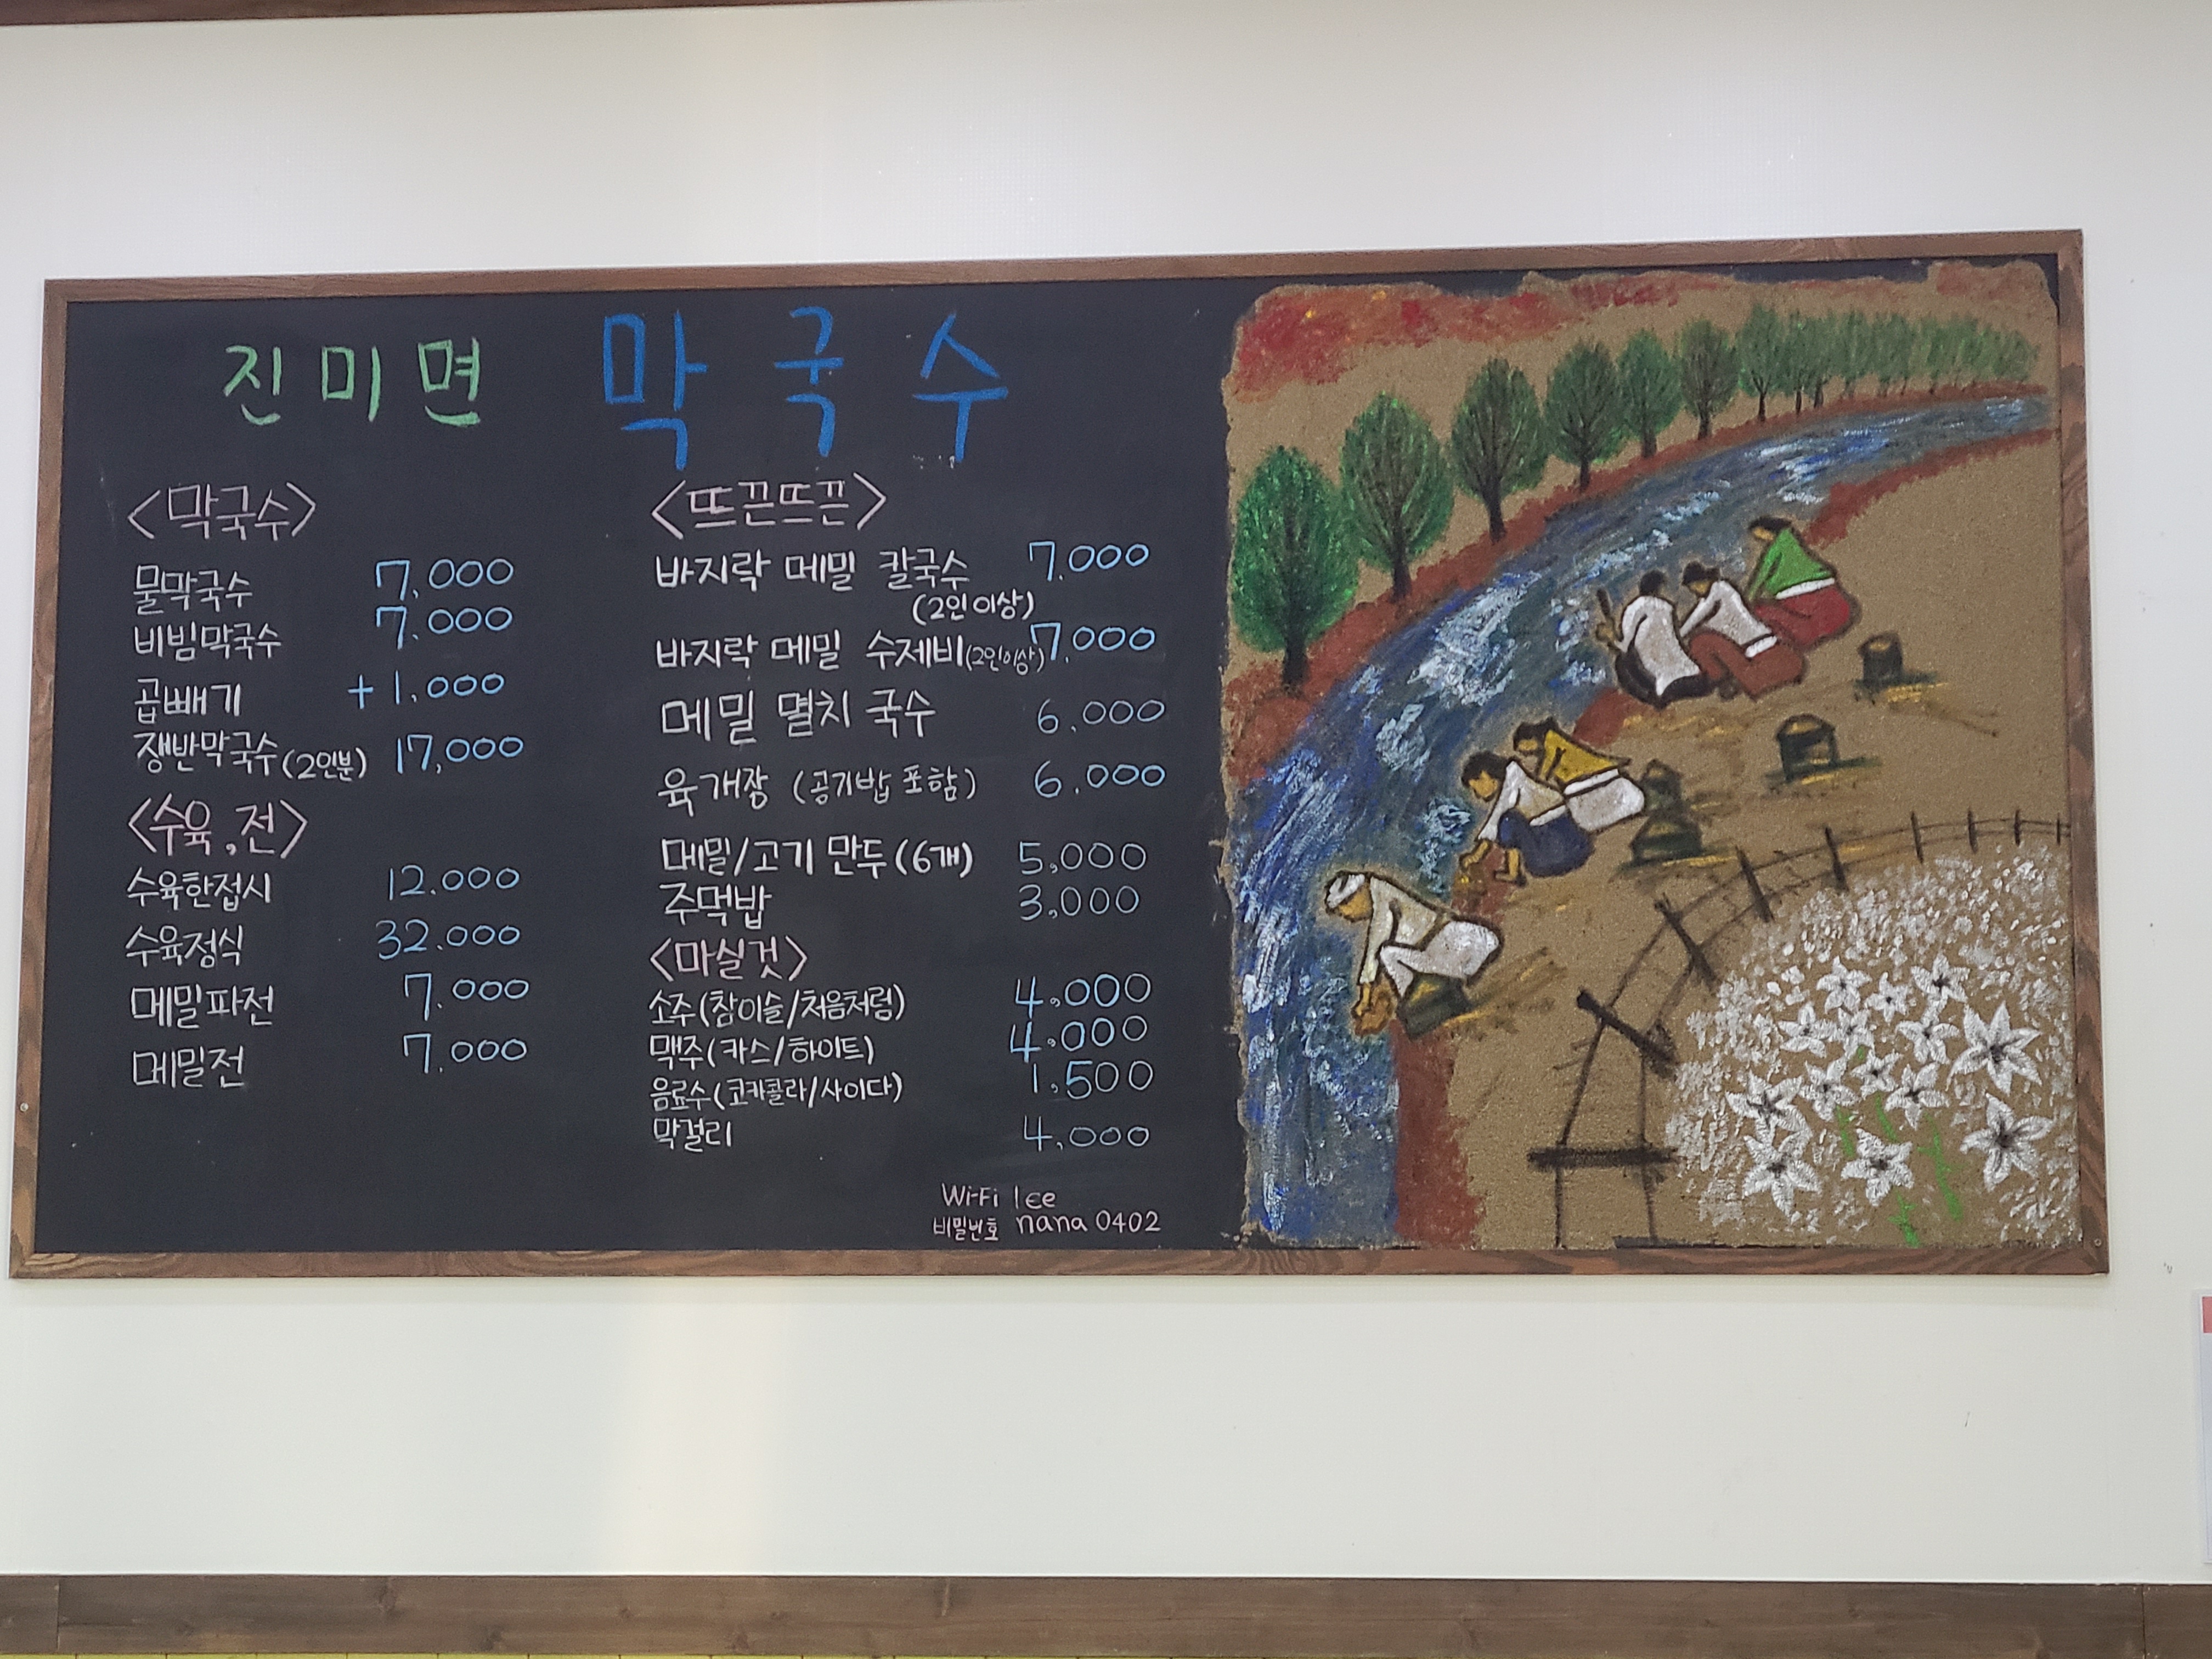 진미면 막국수
<막국수>
물막국수 7,000
비빔막국수 7.000
곱빼기 +1,000
쟁반막국수(2인분) 17,000
<수육,전>
수육한접시 12.000
수육정식 32.000
메밀파전 7.000
메밀전 7.000
<뜨끈뜨끈>
바지락 메밀 칼국수 7.000
(2인이상)
바지락 메밀 수제비(2인이상) 7.000
메밀 멸치 국수 6.000
육개장 (공기밥 포함) 6.000
메밀/고기 만두(6개) 5,000
주먹밥 3,000
<마실것>
소주(참이슬/처음처럼) 4,000
맥주(카스/하이트) 4.000
음료수(코카콜라/사이다) 1,500
막걸리 4,000
Wi-Fi lee
비밀번호 nana 0402